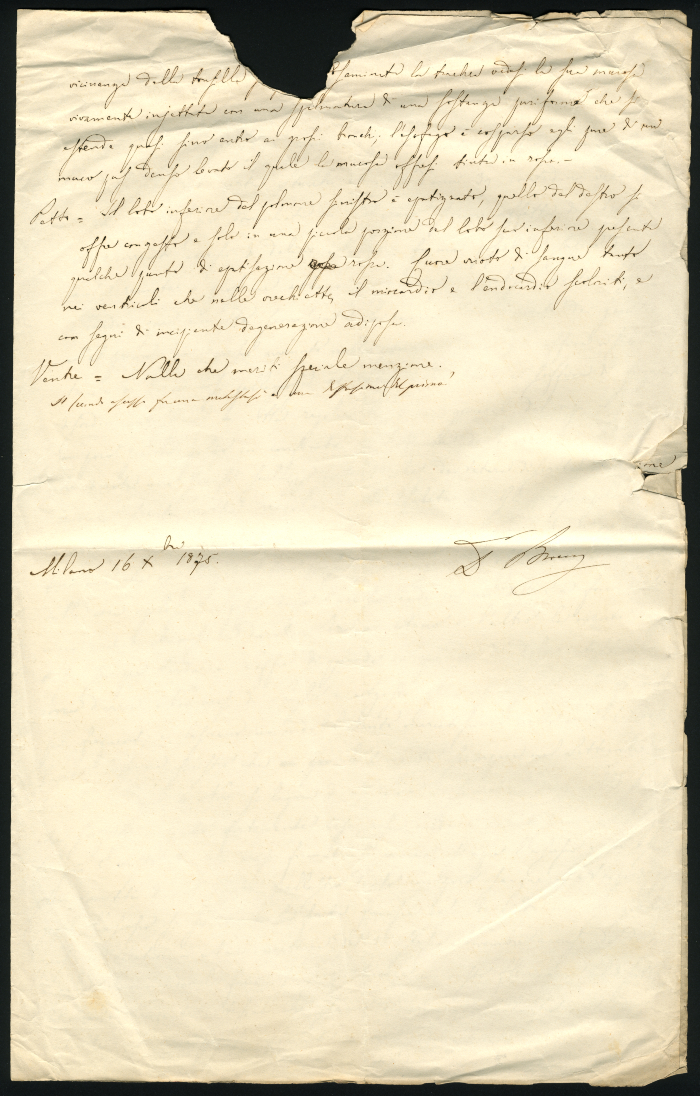 vicinanze delle tonsille Esaminata la trachea vedesi la sua mucosa
vivamente injettata con una spalmatura di una sostanza puriforme che si
estende quasi sino entro ai grossi bronchi. L'esofago è cosparso egli pure di un
muco più denso levato il quale la mucosa offresi tinta in rosso. -
Petto = Il lobo inferiore del polmone sinistro è epatizzato, quello del destro si
offre congesto e solo in una piccola porzione del lobo suo inferiore presenta
qualche punto di epatizzazione rossa. Cuore vuoto di sangue tanto
nei ventricoli che nelle orecchiette, il miocardio e l'endocardio scoloriti, e
con segni di incipiente degenerazione adiposa.
Ventre = Nulla che meriti speciale menzione.
Il secondo ascesso fu una metastasi
one
Milano 16 Xbre 1875.
Dr